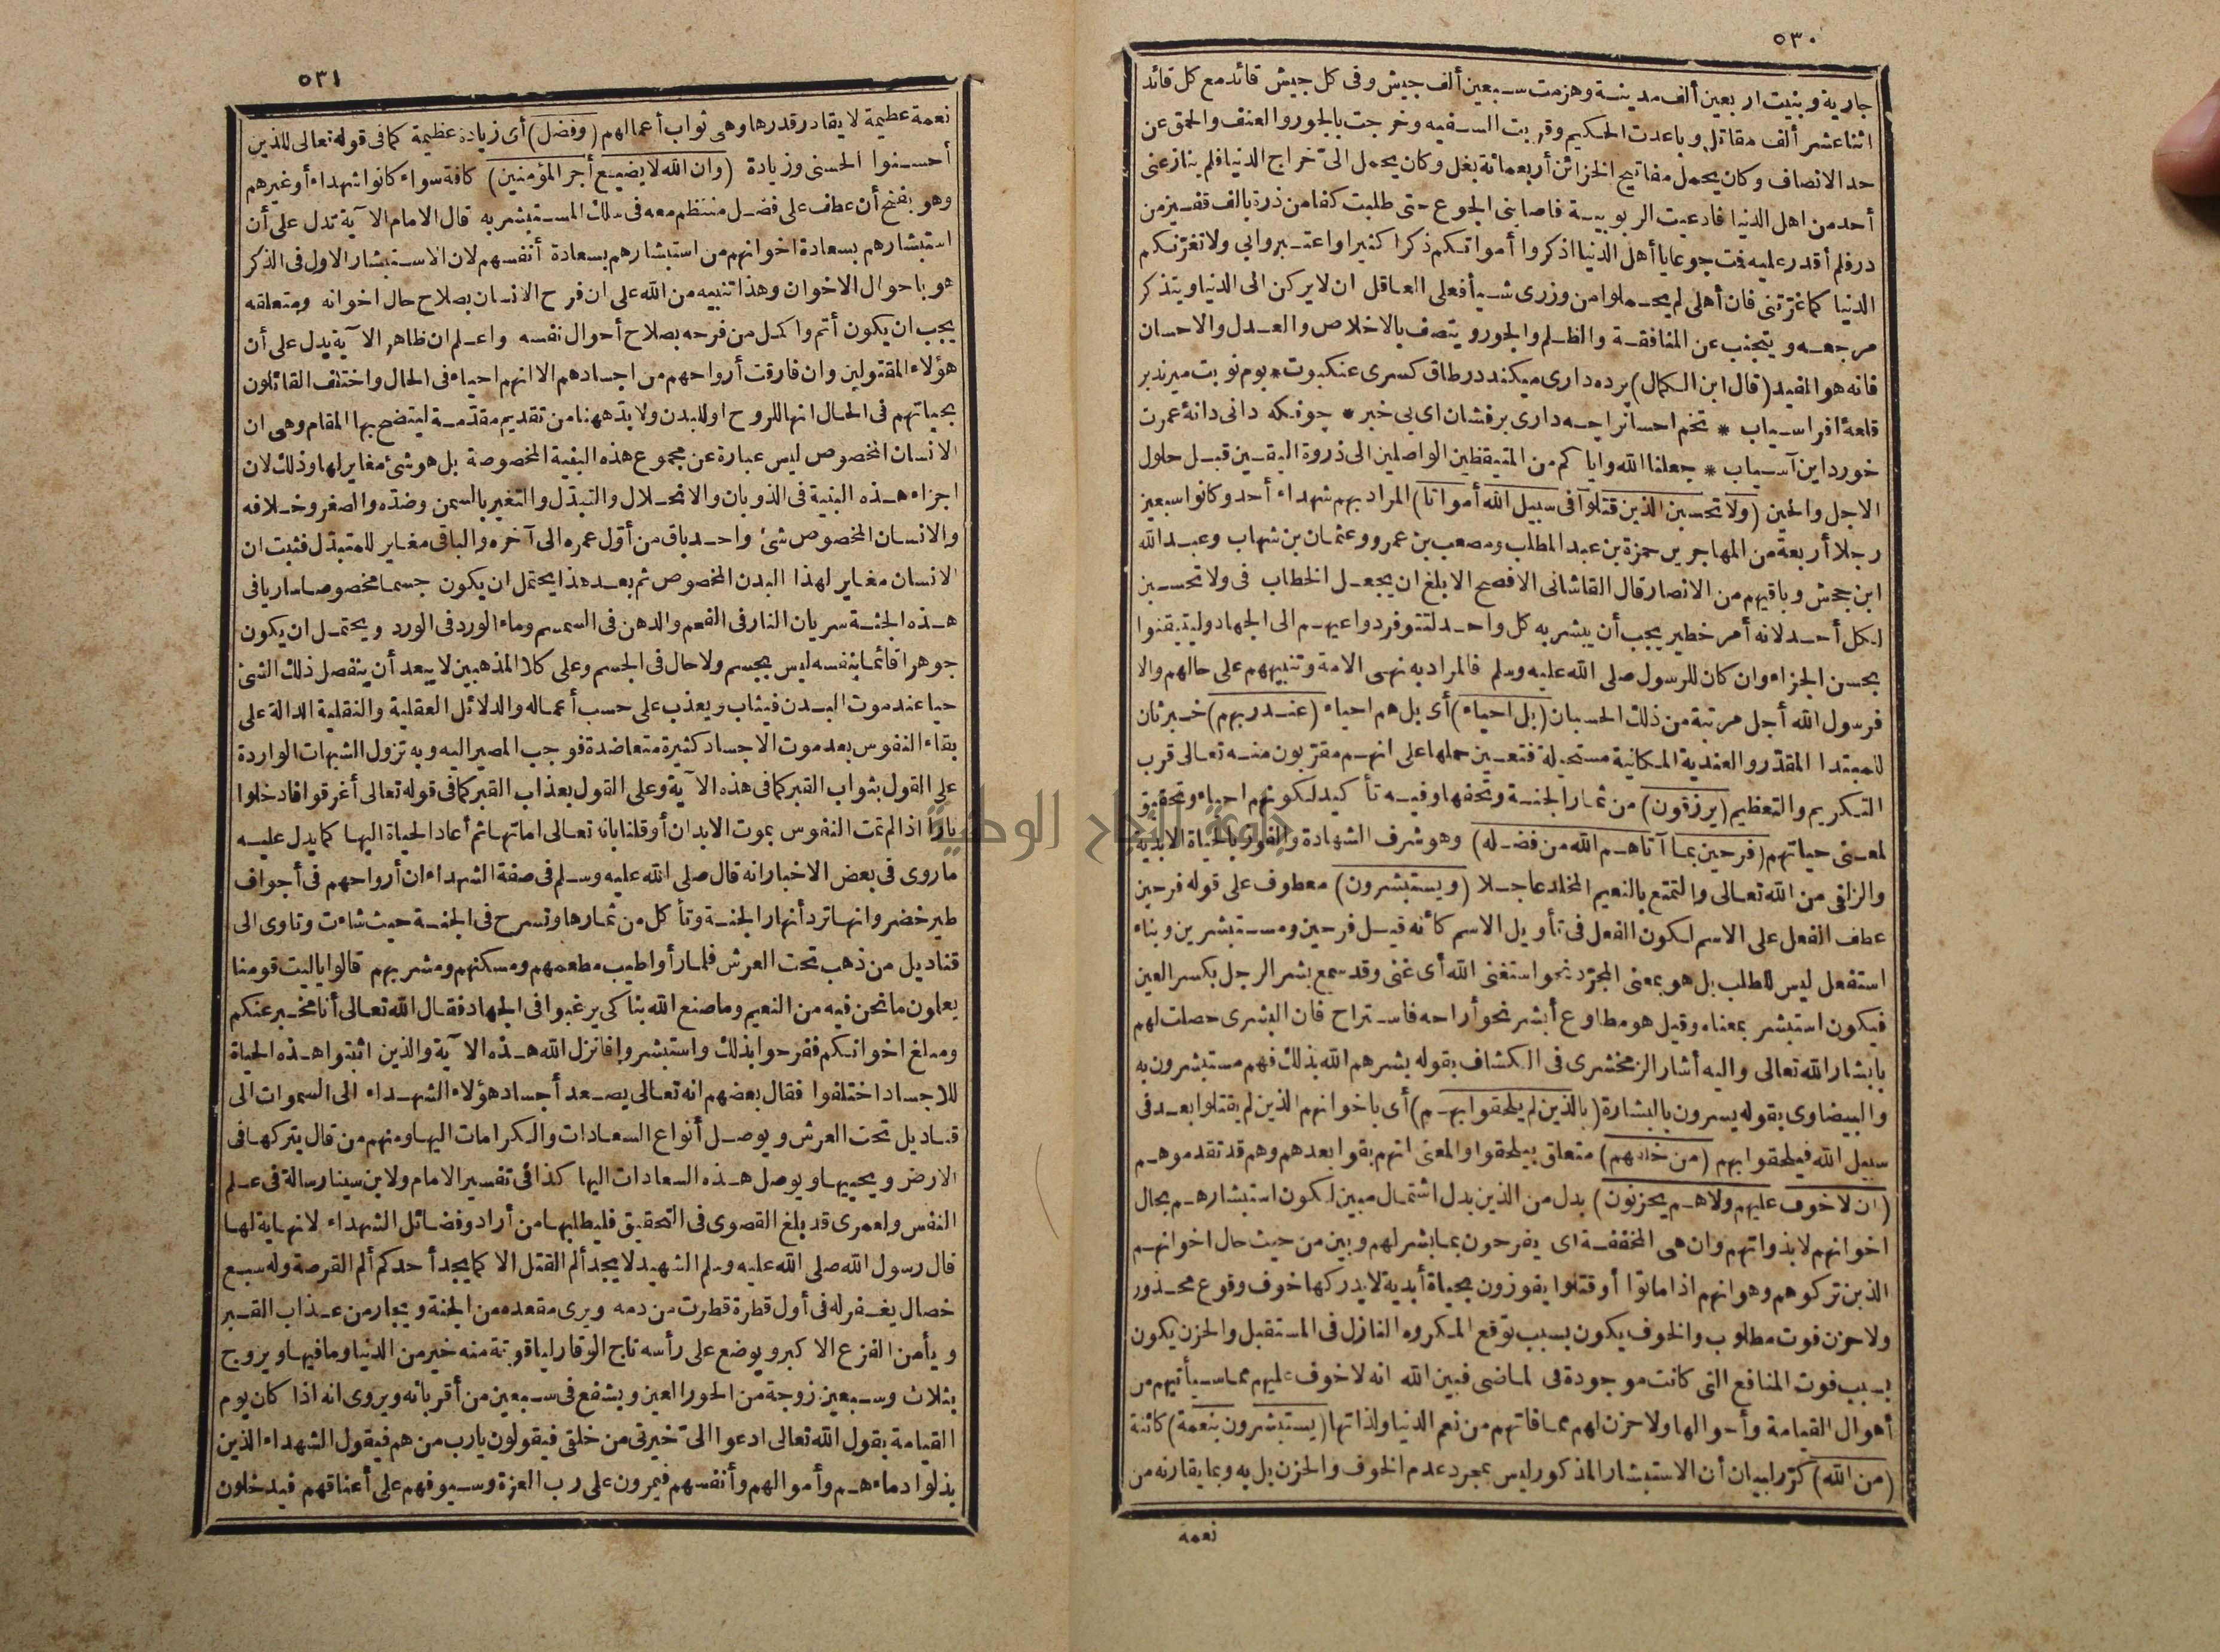 ٥٣٠
جارية وبنيت اربعين ألف مدينة وهزمت سبعين ألف جيش وفى كل جيش قائد مع كل قائد
اثنا عشر ألف مقاتل وباعدت الحكيم وقربت السفيه وخرجت بالجور والعنف والحمق عن
حد الانصاف وكان يحمل مفاتيح الخزائن أربعمائة بغل وكان يحمل الىّ خراج الدنيا فلم ينازعنى
أحد من اهل الدنيا فادعيت الربوبية فاصابنى الجوع حتى طلبت كفا من ذرة بالف قفيز من
در فلم أقدر عليه فت جوعا يا أهل الدنيا اذكروا أمواتكم ذكرا كثيرا واعتبروا بى ولا تغرنكم
الدنيا كما غرتنى فان أهلى لم يحملوا من وزرى شيأ فعلى العاقل ان لا يركن الى الدنيا ويتذكر
مرجعه ويتجنب عن المنافقة والظلم والجور ويتصف بالاخلاص والعدل والاحسان
فانه هو المفيد (قال ابن الكمال) پرده دارى ميكند در طاق كسرى عنكبوت * بوم نوبت ميزند بر
قلعۀ افراسياب * تخم احسانرا چه دارى برفشان اى بى خبر * چونكه دانى دانۀ عمرت
خورد اين آسياب * جعلنا الله واياكم من المتيقظين الواصلين الى ذروة اليقين قبل حلول
الاجل والحين (ولا تحسبن الذين قتلوا فى سبيل الله أمواتا) المراد بهم شهداء أحد وكانوا سبعين
رجلا أربعة من المهاجرين حمزة بن عبد المطلب ومصعب بن عمرو وعثمان بن شهاب وعبد الله
ابن جحش وباقيهم من الانصار قال القاشانى الافصح الابلغ ان يجعل الخطاب فى ولا تحسبن
لكل أحد لانه أمر خطير يجب أن يبشر به كل واحد لتتوفر دواعيهم الى الجهاد وليتيقنوا
بحسن الجزاء وان كان للرسول صلى الله عليه وسلم فالمراد به نهى الامة وتنبيههم على حالهم والا
فرسول الله أجل مرتبة من ذلك الحسبان (بل احياء) أى بل هم احياء (عند ربهم) خبر ثان
للمبتدا المقدر والعندية المكانية مستحيلة فتعين حملها على انهم مقربون منه تعالى قرب
التكريم والتعظيم (يرزقون) من ثمار الجنة وتحفها وفيه تأكيد لكونهم احياء وتحقيق
لمعنى حياتهم (فرحين بما آتاهم الله من فضله) وهو شرف الشهادة والفوز بالحياة الابدية
والزلفى من الله تعالى والتمتع بالنعيم المخلد عاجلا (ويستبشرون) معطوف على قوله فرحين
عطف الفعل على الاسم لكون الفعل فى تأويل الاسم كأنه قيل فرحين ومستبشرين وبناء
استفعل ليس للطلب بل هو بمعنى المجرد نحو استغنى الله أى غنى وقد سمع بشر الرجل بكسر العين
فيكون استبشر بمعناه وقيل هو مطاوع أبشر نحو أراحه فاستراح فان البشرى حصلت لهم
بابشار الله تعالى واليه أشار الزمخشرى فى الكشاف بقوله بشرهم الله بذلك فهم مستبشرون به
والبيضاوى بقوله يسرون بالبشارة (بالذين لم يلحقوا بهم) أى باخوانهم الذين لم يقتلوا بعد فى
سبيل الله فيلحقوا بهم (من خلفهم) متعلق بيلحقوا والمعنى انهم بقوا بعدهم وهم قد تقدموهم
(ان لا خوف عليهم ولا هم يحزنون) بدل من الذين بدل اشتمال مبين لكون استبشارهم بحال
اخوانهم لا بذواتهم وان هى المخففة اى يفرحون بما بشر لهم وبين من حيث حال اخوانهم
الذين تركوهم وهو انهم اذا ماتوا أو قتلوا يفوزون بحياة أبدية لا يدركها خوف وقوع محذور
ولا حزن فوت مطلوب والخوف يكون بسبب توقع المكروه النازل فى المستقبل والحزن يكون
بسبب فوت المنافع التى كانت موجودة فى لماضى فبين الله انه لا خوف عليهم مما سيأتيهم من
أهوال القيامة وأحوالها ولا حزن لهم مما فاتهم من نعم الدنيا ولذاتها (يستبشرون بنعمة) كائنة
(من الله) كرر لبيان أن الاستبشار المذكور ليس بمجرد عدم الخوف والحزن بل به وبما يقارنه من
نعمة
٥٣١
نعمة عظيمة لا يقادر قدرها وهى ثواب أعمالهم (وفضل) أى زيادة عظيمة كما فى قوله تعالى للذين
أحسنوا الحسنى وزيادة (وان الله لا يضيع أجر المؤمنين) كافة سواء كانوا شهداء أو غيرهم
وهو بفتح أن عطف على فضل منتظم معه فى سلك المستبشر به قال الامام الآية تدل على أن
استبشارهم بسعادة اخوانهم من استبشارهم بسعادة أنفسهم لان الاستبشار الاول فى الذكر
هو باحوال الاخوان وهذا تنبيه من الله على ان فرح الانسان بصلاح حال اخوانه ومتعلقه
يجب ان يكون أتم واكمل من فرحه بصلاح أحوال نفسه واعلم ان ظاهر الآية يدل على أن
هؤلاء المقتولين وان فارقت أرواحهم من اجسادهم الا انهم احياء فى الحال واختلف القائلون
بحياتهم فى الحال انها للروح او للبدن ولا بد ههنا من تقديم مقدمة ليتضح بها المقام وهى ان
الانسان المخصوص ليس عبارة عن مجموع هذه البنية المخصوصة بل هو شئ مغاير لها وذلك لان
اجزاء هذه البنية فى الذوبان والانحلال والتبدل والتغير بالسمن وضده والصغر وخلافه
والانسان المخصوص شئ واحد باق من أول عمره الى آخره والباقى مغاير للمتبدل فثبت ان
الانسان مغاير لهذا البدن المخصوص ثم بعد هذا يحتمل ان يكون جسما مخصوصا ساريا فى
هذه الجثة سريان النار فى الفحم والدهن فى السمسم وماء الورد فى الورد ويحتمل ان يكون
جوهرا قائما بنفسه ليس بجسم ولا حال فى الجسم وعلى كلا المذهبين لا يبعد أن ينفصل ذلك الشئ
حيا عند موت البدن فيثاب ويعذب على حسب أعماله والدلائل العقلية والنقلية الدالة على
بقاء النفوس بعد موت الاجساد كثيرة متعاضدة فوجب المصير اليه وبه تزول الشبهات الواردة
على القول بثواب القبر كما فى هذه الآية وعلى القول بعذاب القبر كما فى قوله تعالى أغرقوا فادخلوا
نارا اذا لم تمت النفوس بموت الابدان أو قلنا بانه تعالى اماتها ثم أعاد الحياة اليها كما يدل عليه
ما روى فى بعض الاخبار انه قال صلى الله عليه وسلم فى صفة الشهداء ان أرواحهم فى أجواف
طير خضر وانها ترد أنهار الجنة وتأكل من ثمارها وتسرح فى الجنة حيث شاءت وتاوى الى
قناديل من ذهب تحت العرش فلما رأوا طيب مطعمهم ومسكنهم ومشربهم قالوا ياليت قومنا
يعلمون ما نحن فيه من النعيم وما صنع الله بنا كى يرغبوا فى الجهاد فقال الله تعالى أنا مخبر عنكم
ومبلغ اخوانكم ففرحوا بذلك واستبشروا فانزل الله هذه الآية والذين اثبتوا هذه الحياة
للاجساد اختلفوا فقال بعضهم انه تعالى يصعد أجساد هؤلاء الشهداء الى السموات الى
قناديل تحت العرش ويوصل أنواع السعادات والكرامات اليها ومنهم من قال يتركها فى
الارض ويحييها ويوصل هذه السعادات اليها كذا فى تفسير الامام ولابن سينا رسالة فى علم
النفس ولعمرى قد بلغ القصوى فى التحقيق فليطلبها من أراد وفضائل الشهداء لا نهاية لها
قال رسول الله صلى الله عليه وسلم الشهيد لا يجد ألم القتل الا كما يجد أحدكم ألم القرصة وله سبع
خصال يغفر له فى أول قطرة قطرت من دمه ويرى مقعده من الجنة ويجار من عذاب القبر
ويأمن الفزع الاكبر ويوضع على رأسه تاج الوقار لياقوتة منه خير من الدنيا وما فيها ويزوج
بثلاث وسبعين زوجة من الحور العين ويشفع فى سبعين من أقربائه ويروى انه اذا كان يوم
القيامة يقول الله تعالى ادعوا الىّ خيرتى من خلقى فيقولون يارب من هم فيقول الشهداء الذين
بذلوا دماءهم وأموالهم وأنفسهم فيمرون على رب العزة وسيوفهم على أعناقهم فيدخلون
جامعة النجاح الوطنية